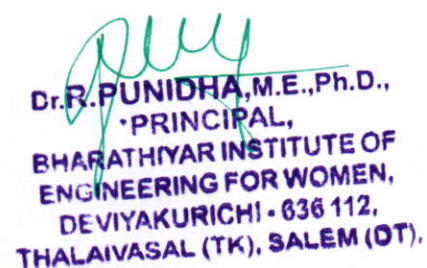 Dr.R.PUNIDHA,M.E.,Ph.D.,
·PRINCIPAL,
BHARATHIYAR INSTITUTE OF
ENGINEERING FOR WOMEN,
DEVIYAKURICHI - 636 112,
THALAIVASAL (TK), SALEM (DT).